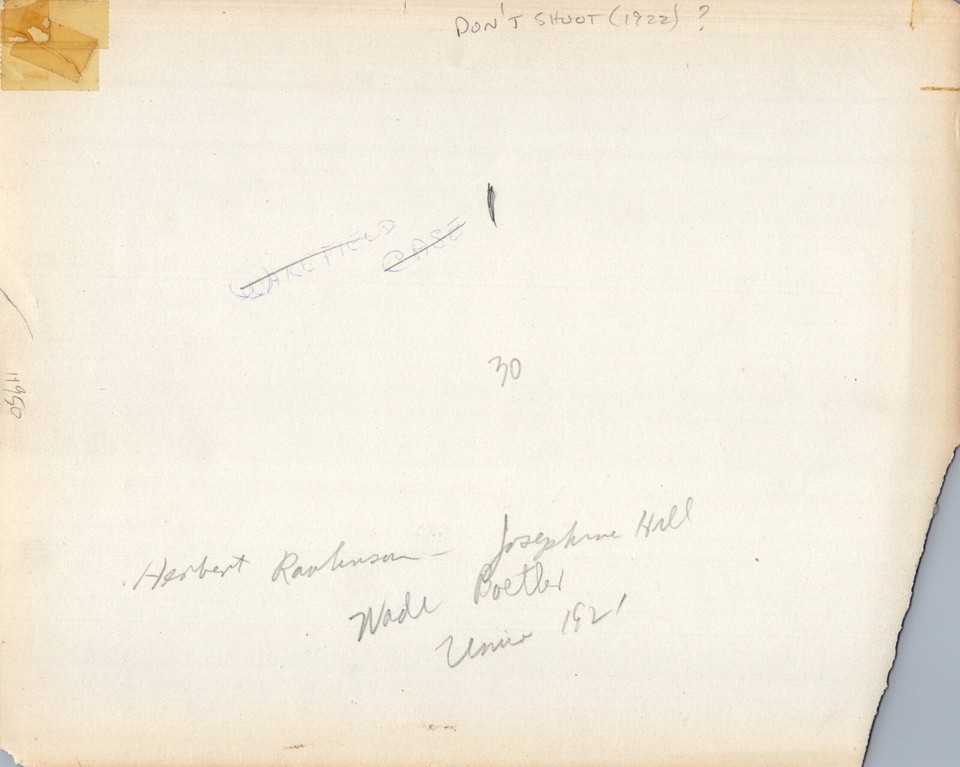 DON'T SHOOT (1922) ?
WAKEFIELD CASE
30
11950
Herbert Rawlinson – Josephine Hill
Wade Boetler
Univ 1921